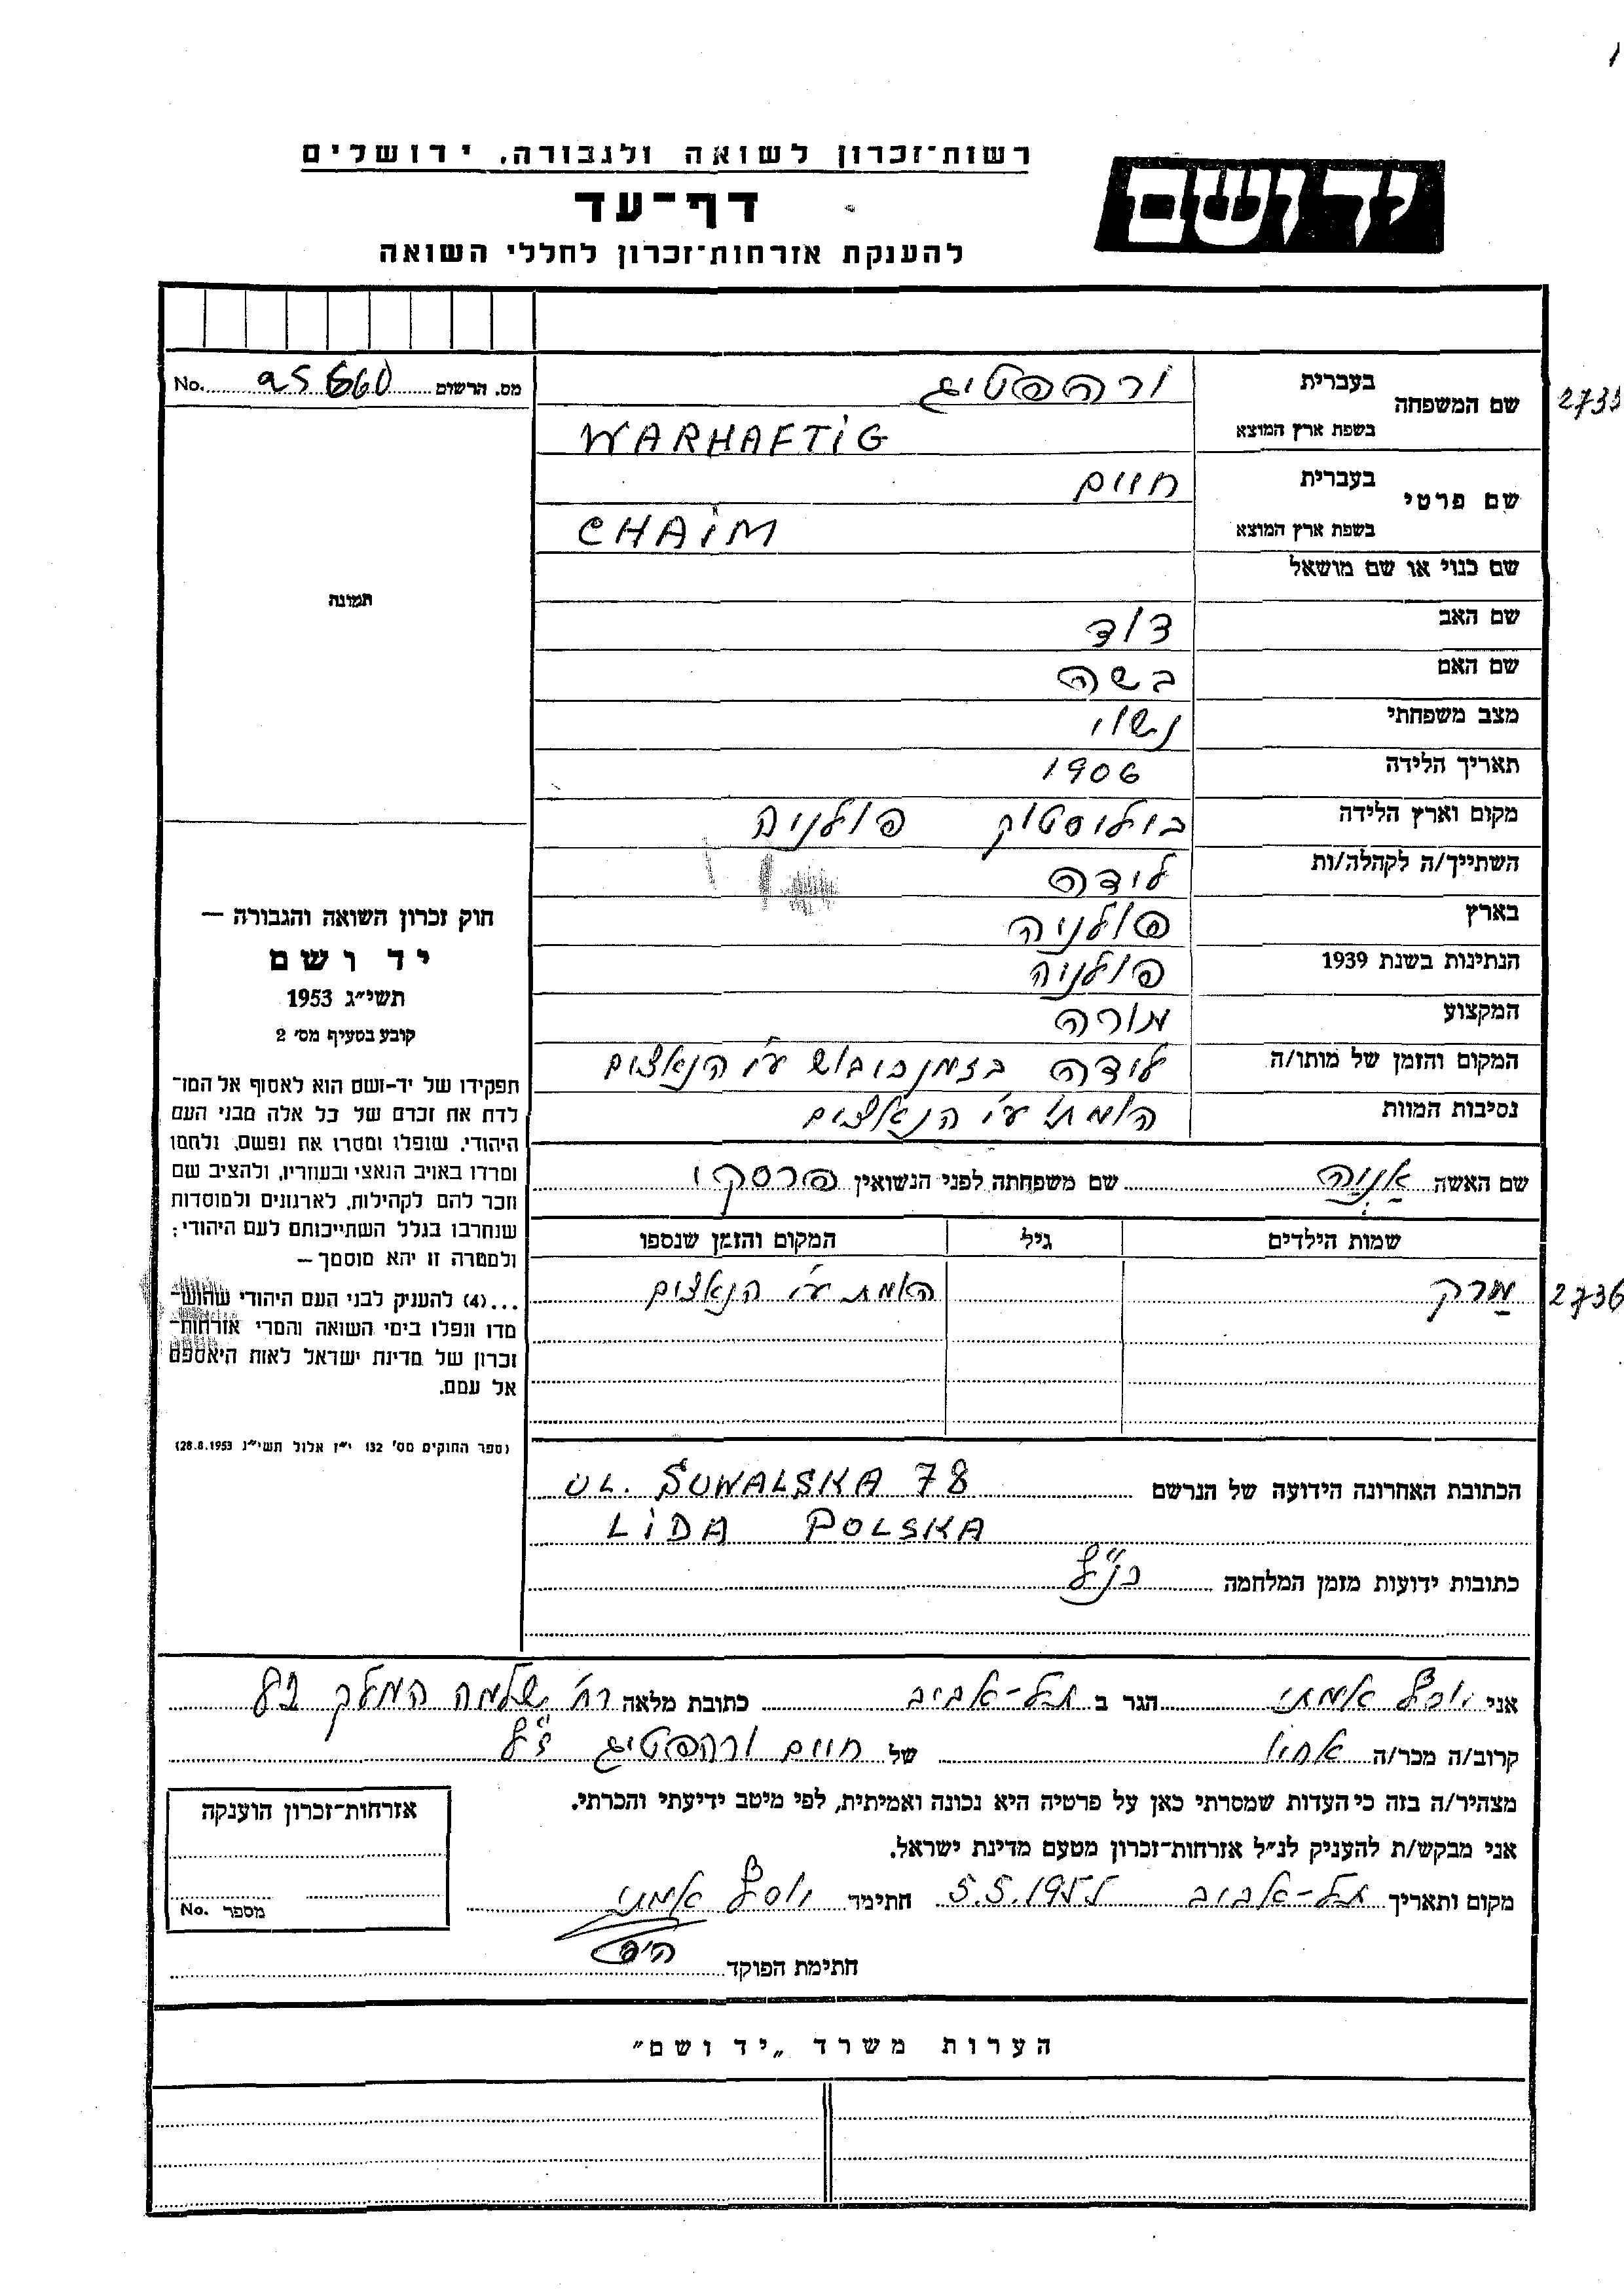 רשות־זכרון לשואה ולגבורה, ירושלים
יד ושם
דף־עד
להענקת אזרחות־זכרון לחללי השואה
No. 25660 מס. הרשום
שם המשפחה בעברית ורהפטיג 2735
בשפת ארץ המוצא WARHAFTIG
שם פרטי בעברית חיים
בשפת ארץ המוצא CHAiM
שם כנוי או שם מושאל
שם האב דוד
שם האם בשה
מצב משפחתי נשוי
תאריך הלידה 1906
מקום וארץ הלידה ביליסטוק פולניה
השתייך/ה לקהלה/ות לידה
בארץ פולניה
הנתינות בשנת 1939 פולניה
המקצוע מורה
המקום והזמן של מותו/ה לידה בזמן כיבוש ע"י הנאצים
נסיבות המוות הומת ע"י הנאצים
שם האשה אַניה שם משפחתה לפני הנשואין פרסקי
שמות הילדים גיל המקום והזמן שנספו
מַרק הומת ע"י הנאצים 2736
הכתובת האחרונה הידועה של הנרשם UL. SUWALSKA 78
LiDA POLSKA
כתובות ידועות מזמן המלחמה כנ"ל
תמונה
חוק זכרון השואה והגבורה —
יד ושם
תשי״ג 1953
קובע בסעיף מס׳ 2
תפקידו של יד־ושם הוא לאסוף אל המו־
לדת את זכרם של כל אלה מבני העם
היהודי, שנפלו ומסרו את נפשם, נלחמו
ומרדו באויב הנאצי ובעוזריו, ולהציב שם
וזכר להם לקהילות, לארגונים ולמוסדות
שנחרבו בגלל השתייכותם לעם היהודי;
ולמטרה זו יהא מוסמך —
...(4) להעניק לבני העם היהודי שהוש־
מדו ונפלו בימי השואה והמרי אזרחות־
זכרון של מדינת ישראל לאות היאספם
אל עמם.
(ספר החוקים מס׳ 132 י״ז אלול תשי״ג 28.8.1953)
אני יוסף אמתי הגר ב תל-אביב כתובת מלאה רח' שלמה המלך
קרוב/ה מכר/ה אחיו של חיים ורהפטיג ז"ל
מצהיר/ה בזה כי העדות שמסרתי כאן על פרטיה היא נכונה ואמיתית, לפי מיטב ידיעתי והכרתי.
אני מבקש/ת להעניק לנ״ל אזרחות־זכרון מטעם מדינת ישראל.
מקום ותאריך תל-אביב 5.5.1955 חתימה יוסף אמתי
חתימת הפוקד
אזרחות־זכרון הוענקה
No. מספר
הערות משרד „יד ושם״